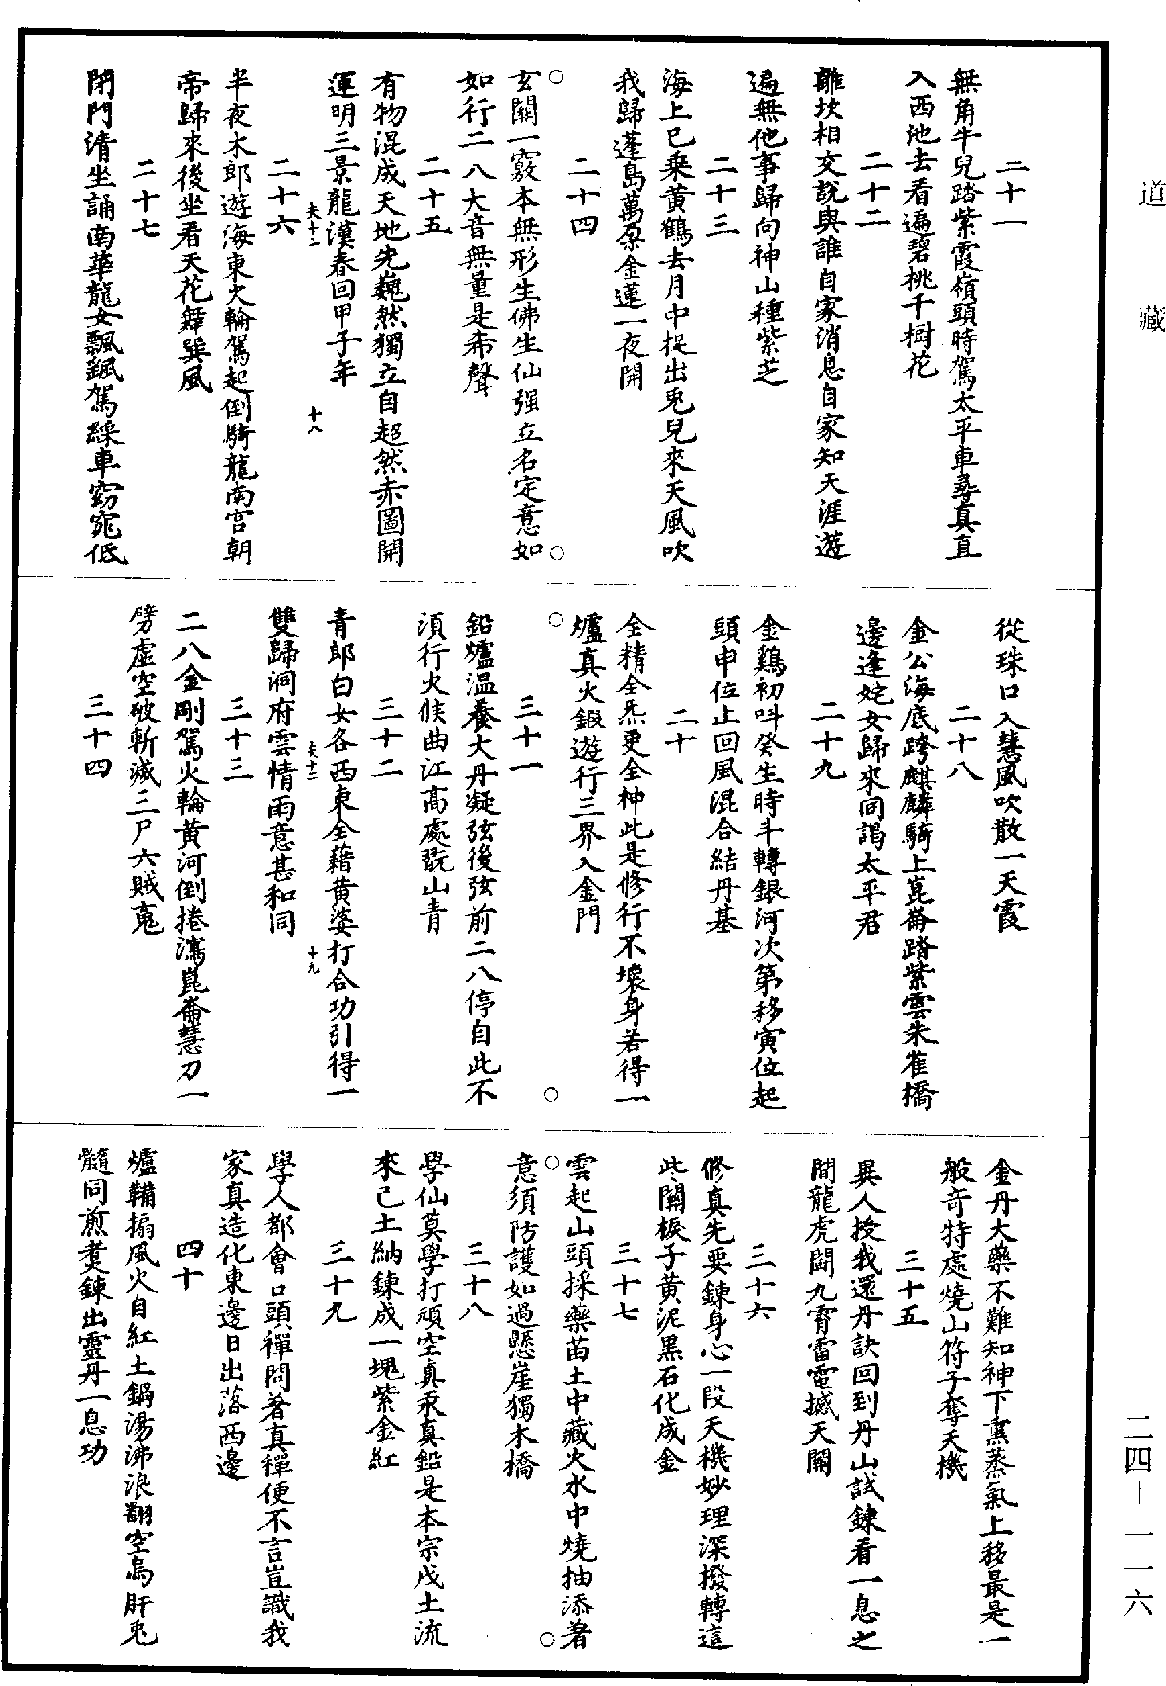 道藏
二十一
無角牛兒踏紫霞嶺頭時駕太平車尋真直
入西池去看遍碧桃千樹花
二十二
離坎相交說與誰自家消息自家知天涯遊
遍無他事歸向神山種紫芝
二十三
海上已乘黃鶴去月中捉出兎兒來天風吹
我歸蓬島萬朶金蓮一夜開
二十四
玄關一竅本無形生佛生仙强立名定意如
如行二八大音無量是希聲
二十五
有物混成天地先巍然獨立自超然赤圖開
運明三景龍漢春回甲子年
夫十二
十八
二十六
半夜木郎遊海東火輪駕起倒騎龍南宮朝
帝歸來後坐看天花舞巽風
二十七
閉門清坐誦南華龍女飄飄駕綵車窈窕低
從珠口入慧風吹散一天霞
二十八
金公海底跨麒麟騎上崑崙踏紫雲朱雀橋
邊逢姹女歸來同謁太平君
二十九
金鷄初呌癸生時斗轉銀河次第移寅位起
頭申位止回風混合結丹基
二十
全精全炁更全神此是修行不壞身若得一
爐真火鍛遊行三界入金門
三十一
鉛爐温養大丹凝弦後弦前二八停自此不
須行火候曲江高處翫山青
三十二
青郎白女各西東全藉黃婆打合功引得一
雙歸洞府雲情雨意甚和同
夫十二
十九
三十三
二八金剛駕火輪黃河倒捲瀉崑崙慧刀一
劈虛空破斬滅三尸六賊䰟
三十四
金丹大藥不難知神下熏蒸氣上移最是一
般奇特處燒山符子奪天機
三十五
異人授我還丹訣回到丹山試鍊看一息之
間龍虎鬬九霄雷電撼天關
三十六
修真先要鍊身心一段天機妙理深撥轉這
此關棙子黃泥黑石化成金
三十七
雲起山頭採藥苗土中藏火水中燒抽添著
意須防護如過懸崖獨木橋
三十八
學仙莫學打頑空真汞真鉛是本宗戊土流
來己土納鍊成一塊紫金紅
三十九
學人都會口頭禪問著真禪便不言豈識我
家真造化東邊日出落西邊
四十
爐鞴搧風火自紅土鍋湯沸浪翻空烏肝兎
髓同煎煑鍊出靈丹一息功
二四－一一六